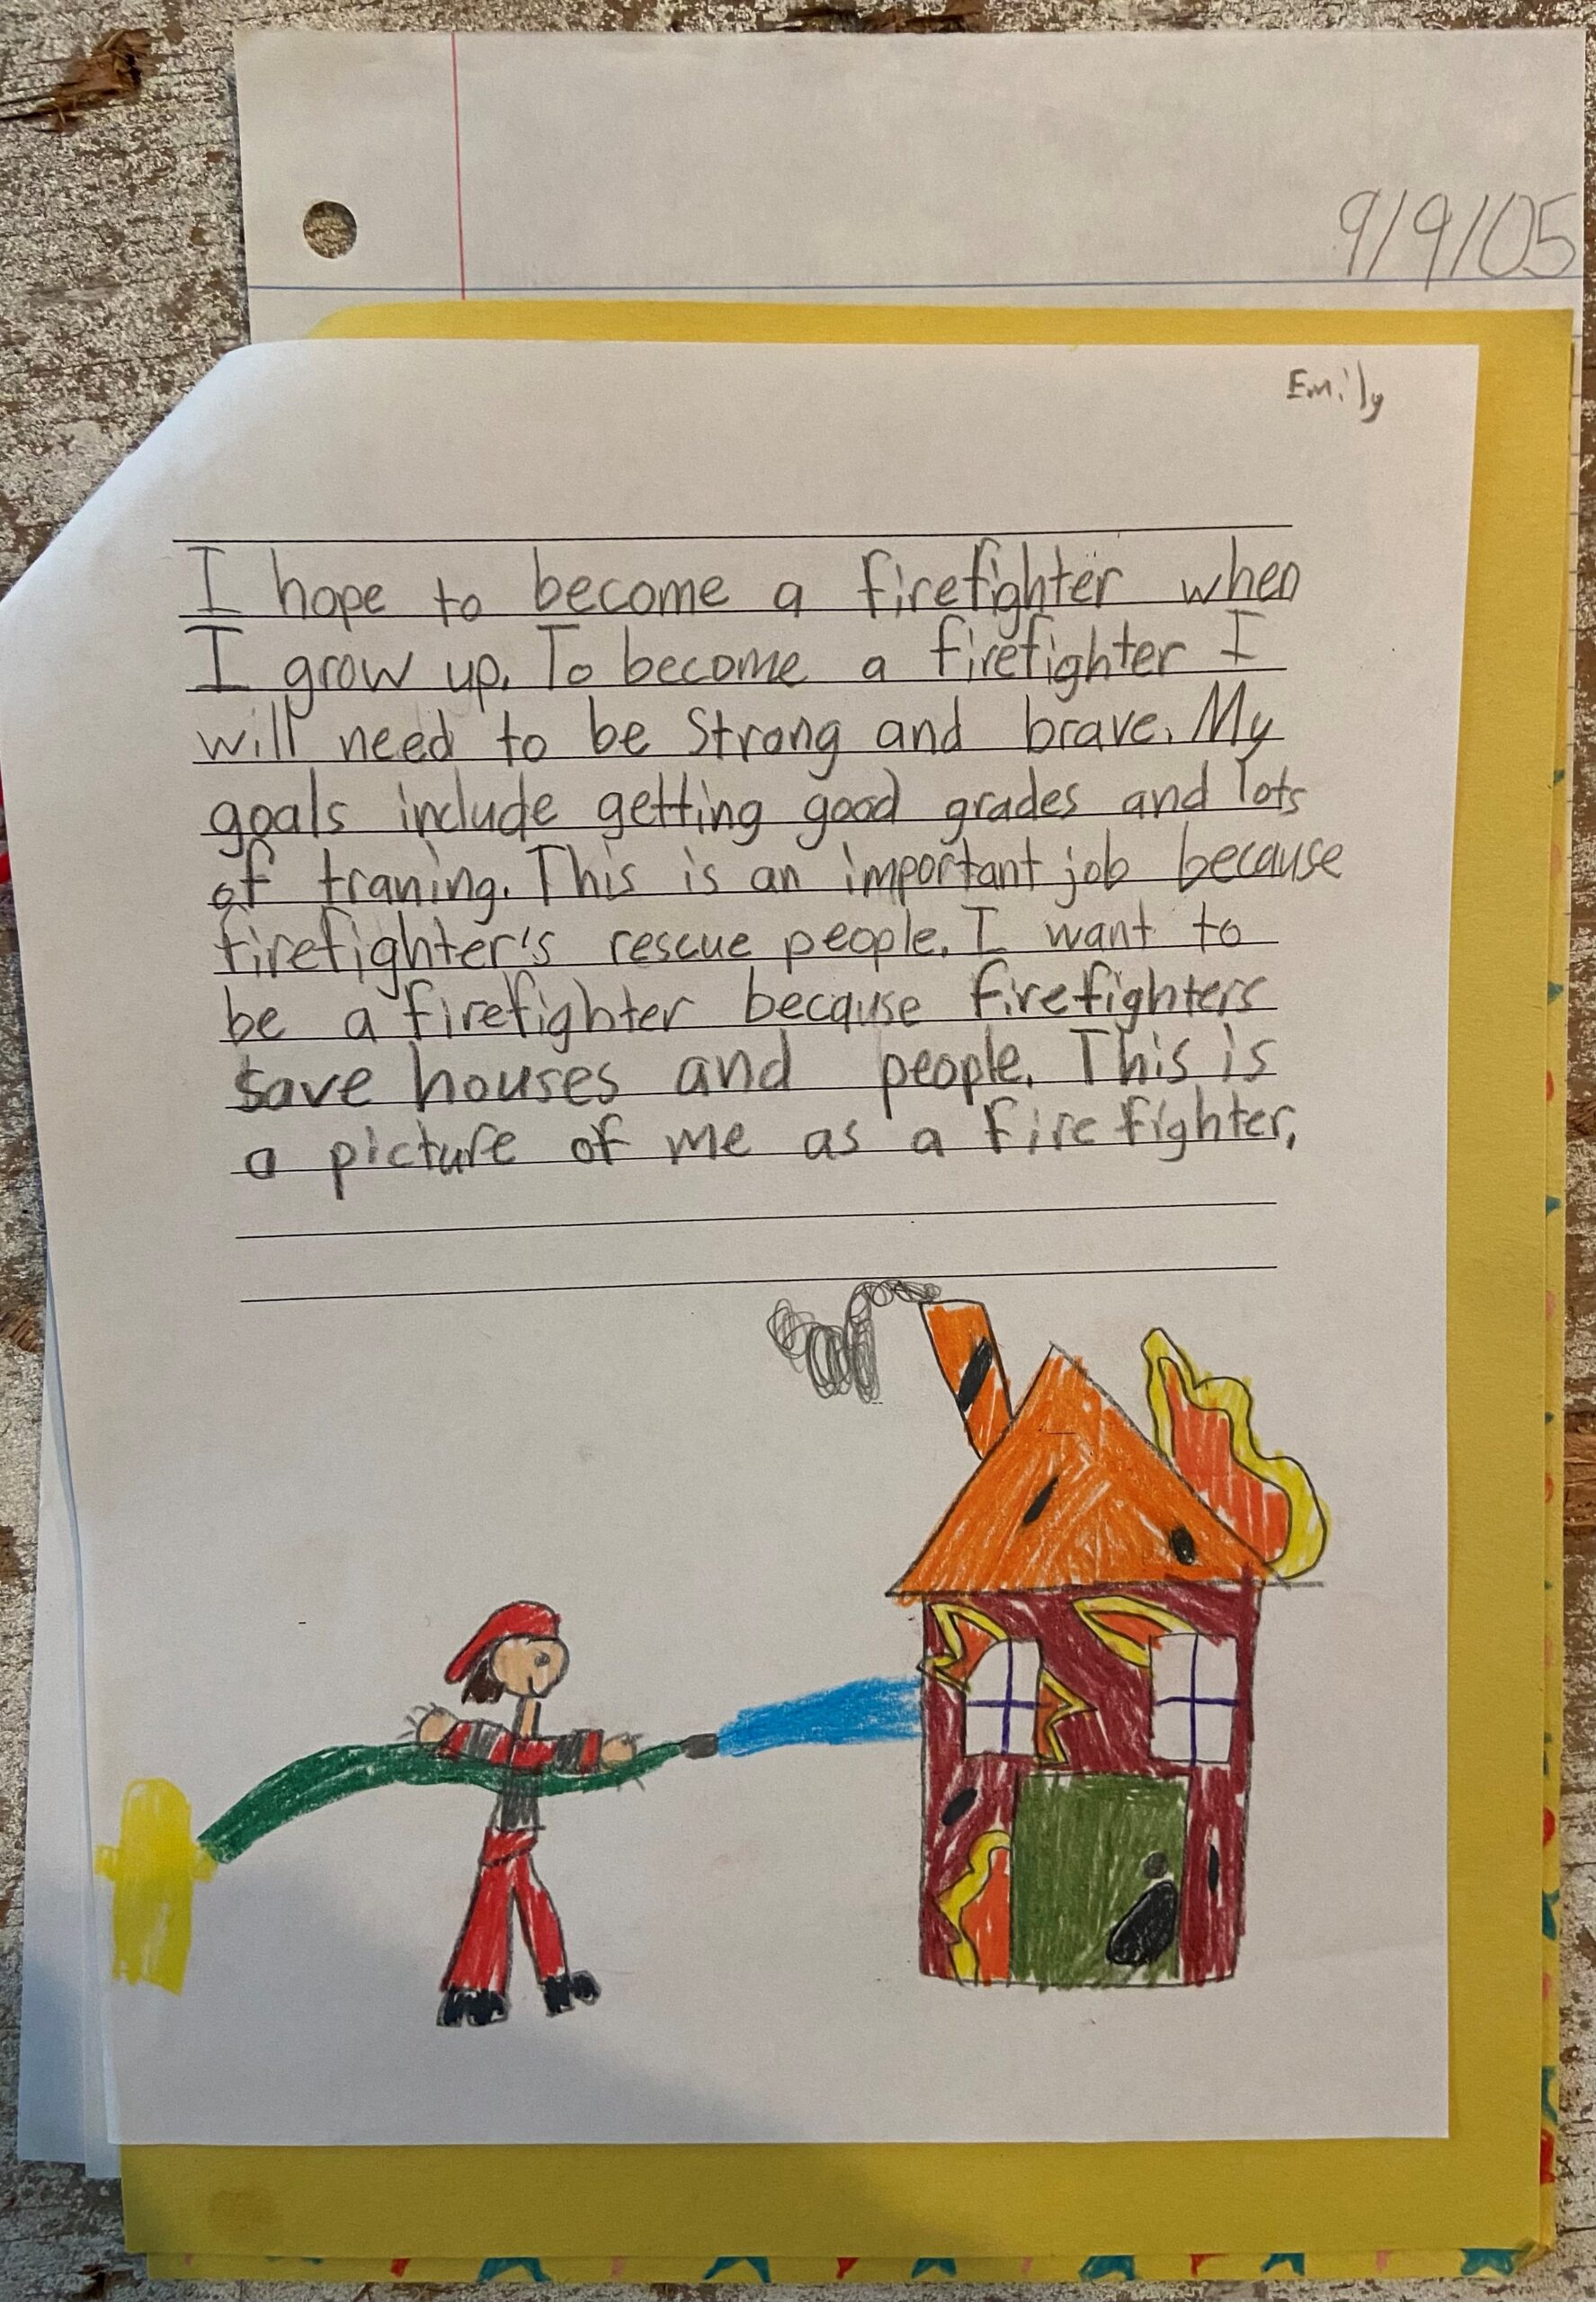 9/9/05
Emily
I hope to become a firefighter when
I grow up. To become a firefighter I
will need to be strong and brave. My
goals include getting good grades and lots
of traning. This is an important job because
firefighter's rescue people. I want to
be a firefighter because firefighters
save houses and people. This is
a picture of me as a firefighter.